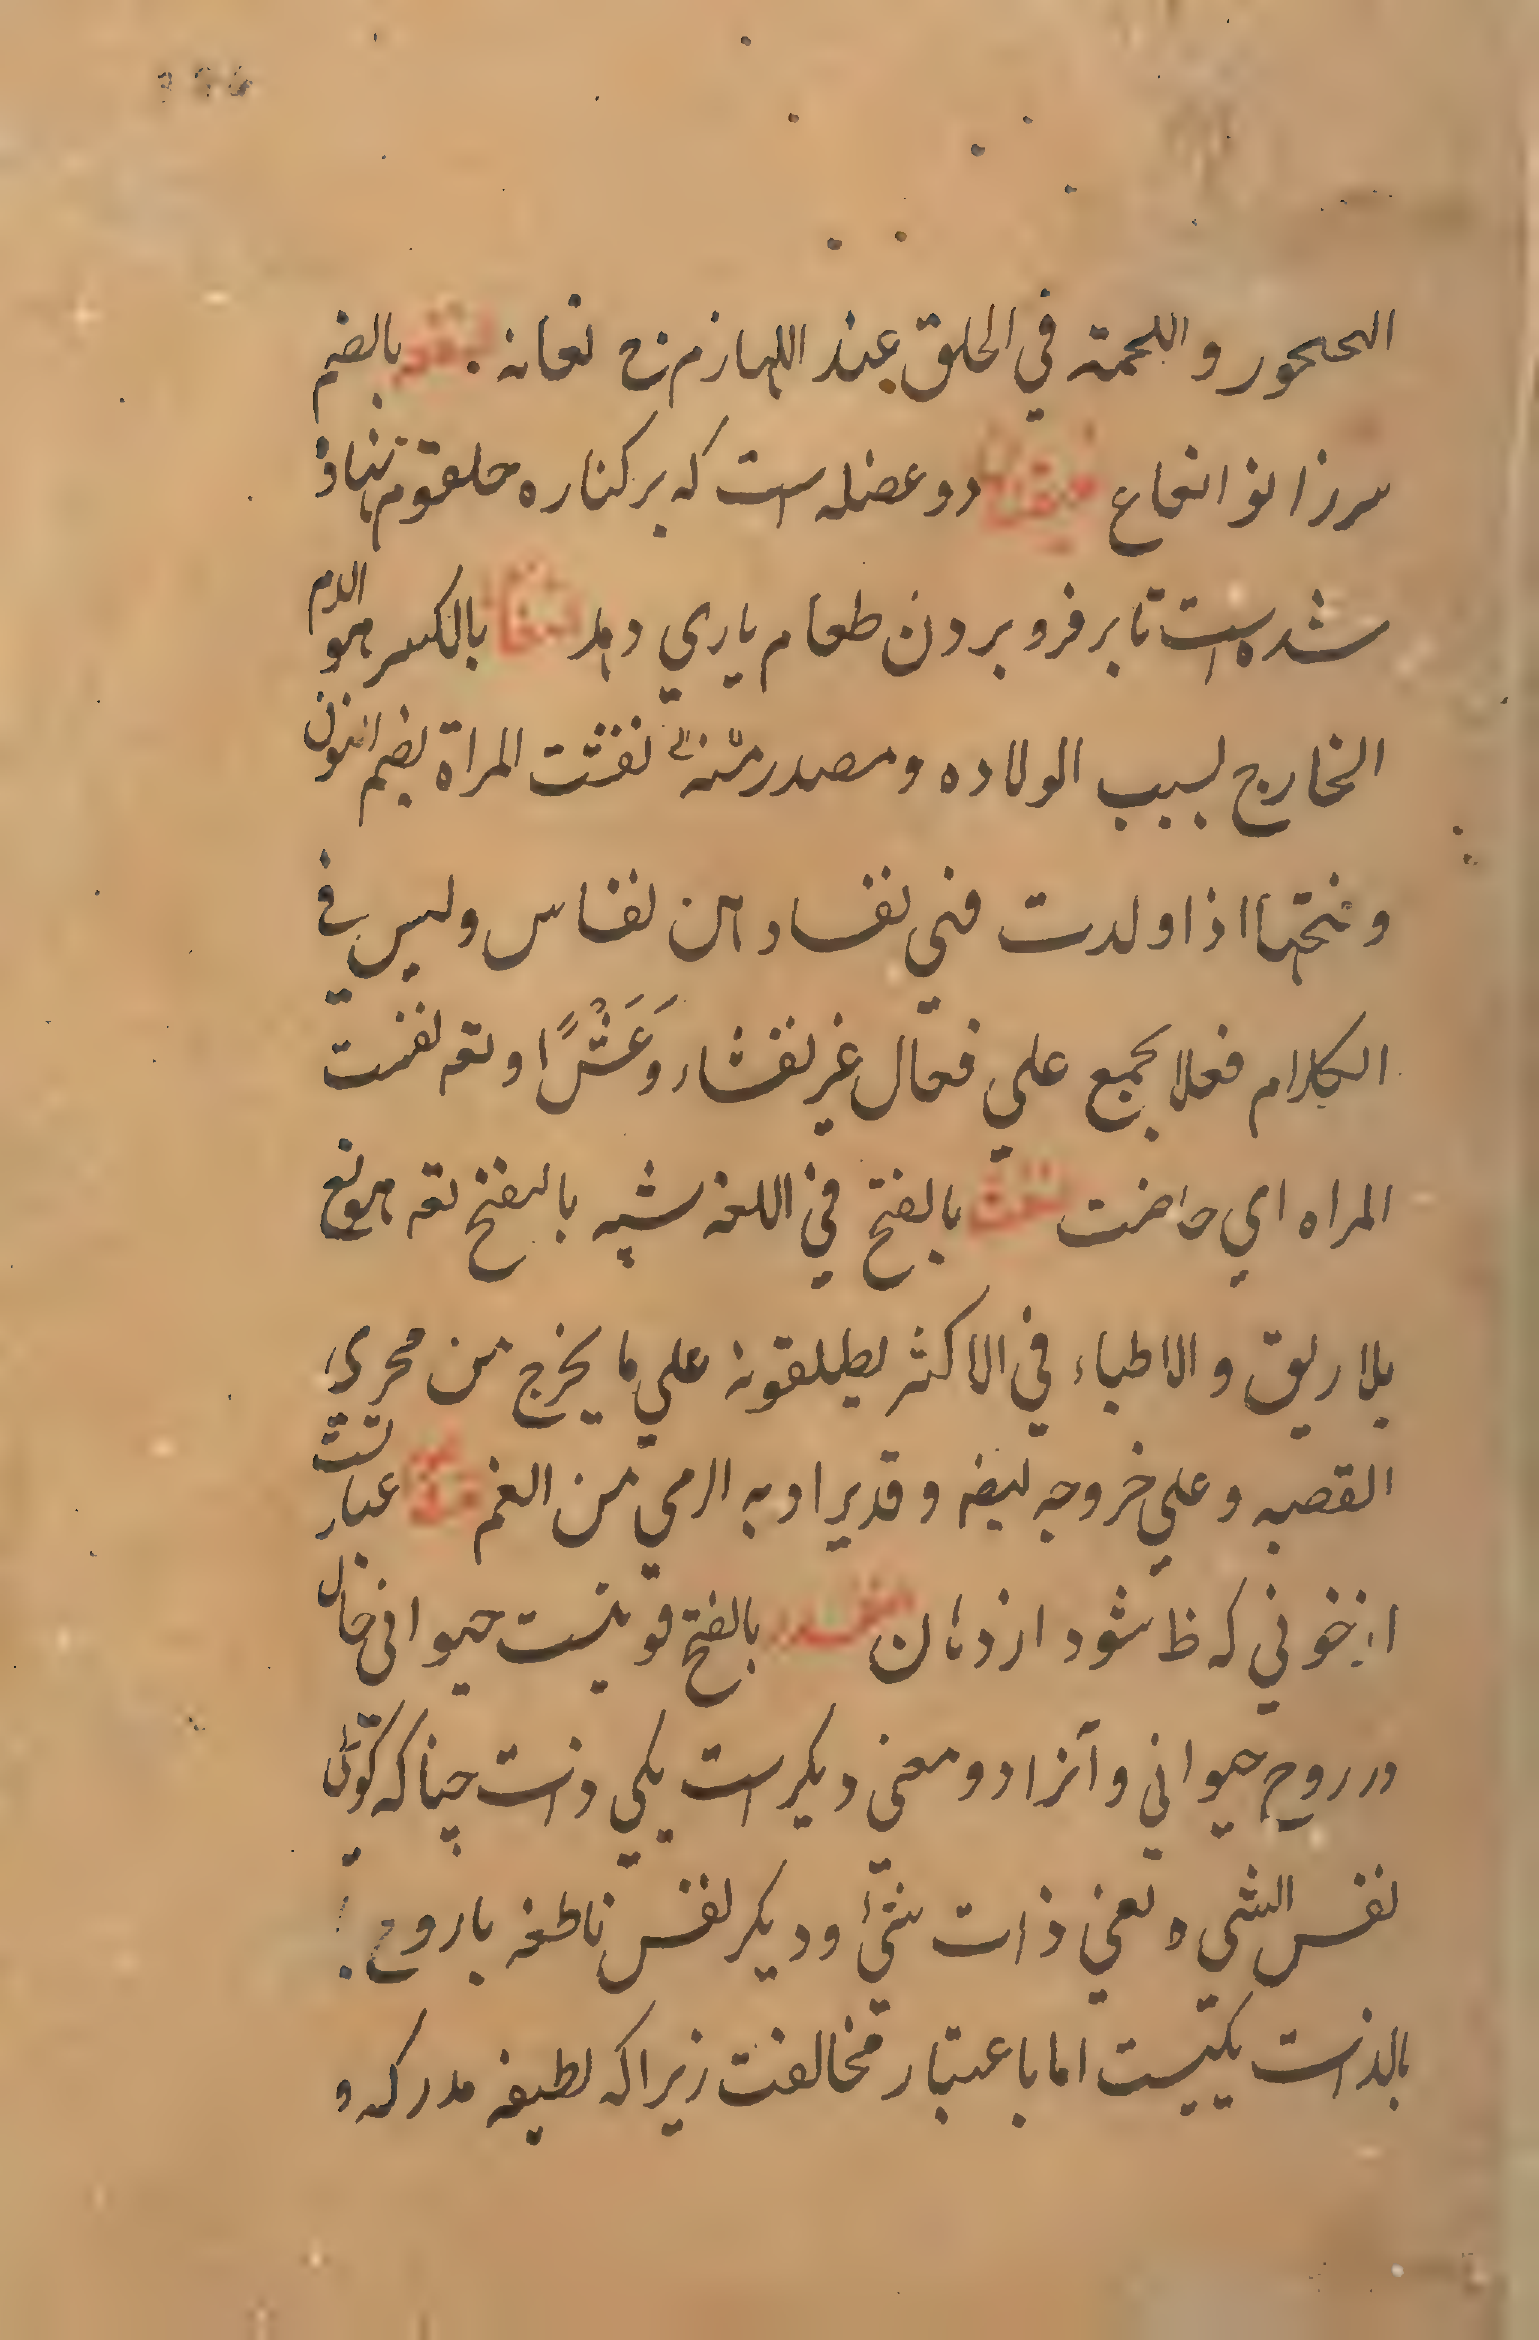 الحنجور واللحمة في الحلق عند اللهازم ج نغانغ بالضم
سرزانو انغاع دو عضله است که بر کناره حلقوم نهاد
شده است تا بر فرو بردن طعام یاري دهد بالکسر هو الدم
الخارج لسبب الولاده ومصدر منه نفثت المراة بضم النون
وفتحها اذا ولدت فهي نفساء وهن نفاس وليس في
الكلام فعلا يجمع علي فعال غير نفساء وعشرا ويقه نفست
المراه اي حاضت نفث بالفتح في اللغه شبه بالنفخ يقه هو نفخ
بلا ريق والاطباء في الاكثر يطلقونه علي ما يخرج من مجري
القصبه وعلي خروجه ايضه وقد يراد به الرمي من الفم عبارتست
از خوني که ظا شود از دهان نفس بالفتح قوتیست حیوانی حال
در روح حیواني وآنرا دو معني دیکر است یکي ذات چنانکه کوئی
نفس الشي ه یعني ذات شئ ودیکر نفس ناطقه با روح
بالذات یکیست اما باعتبار مخالفت زیرا که لطیفه مدرکه و